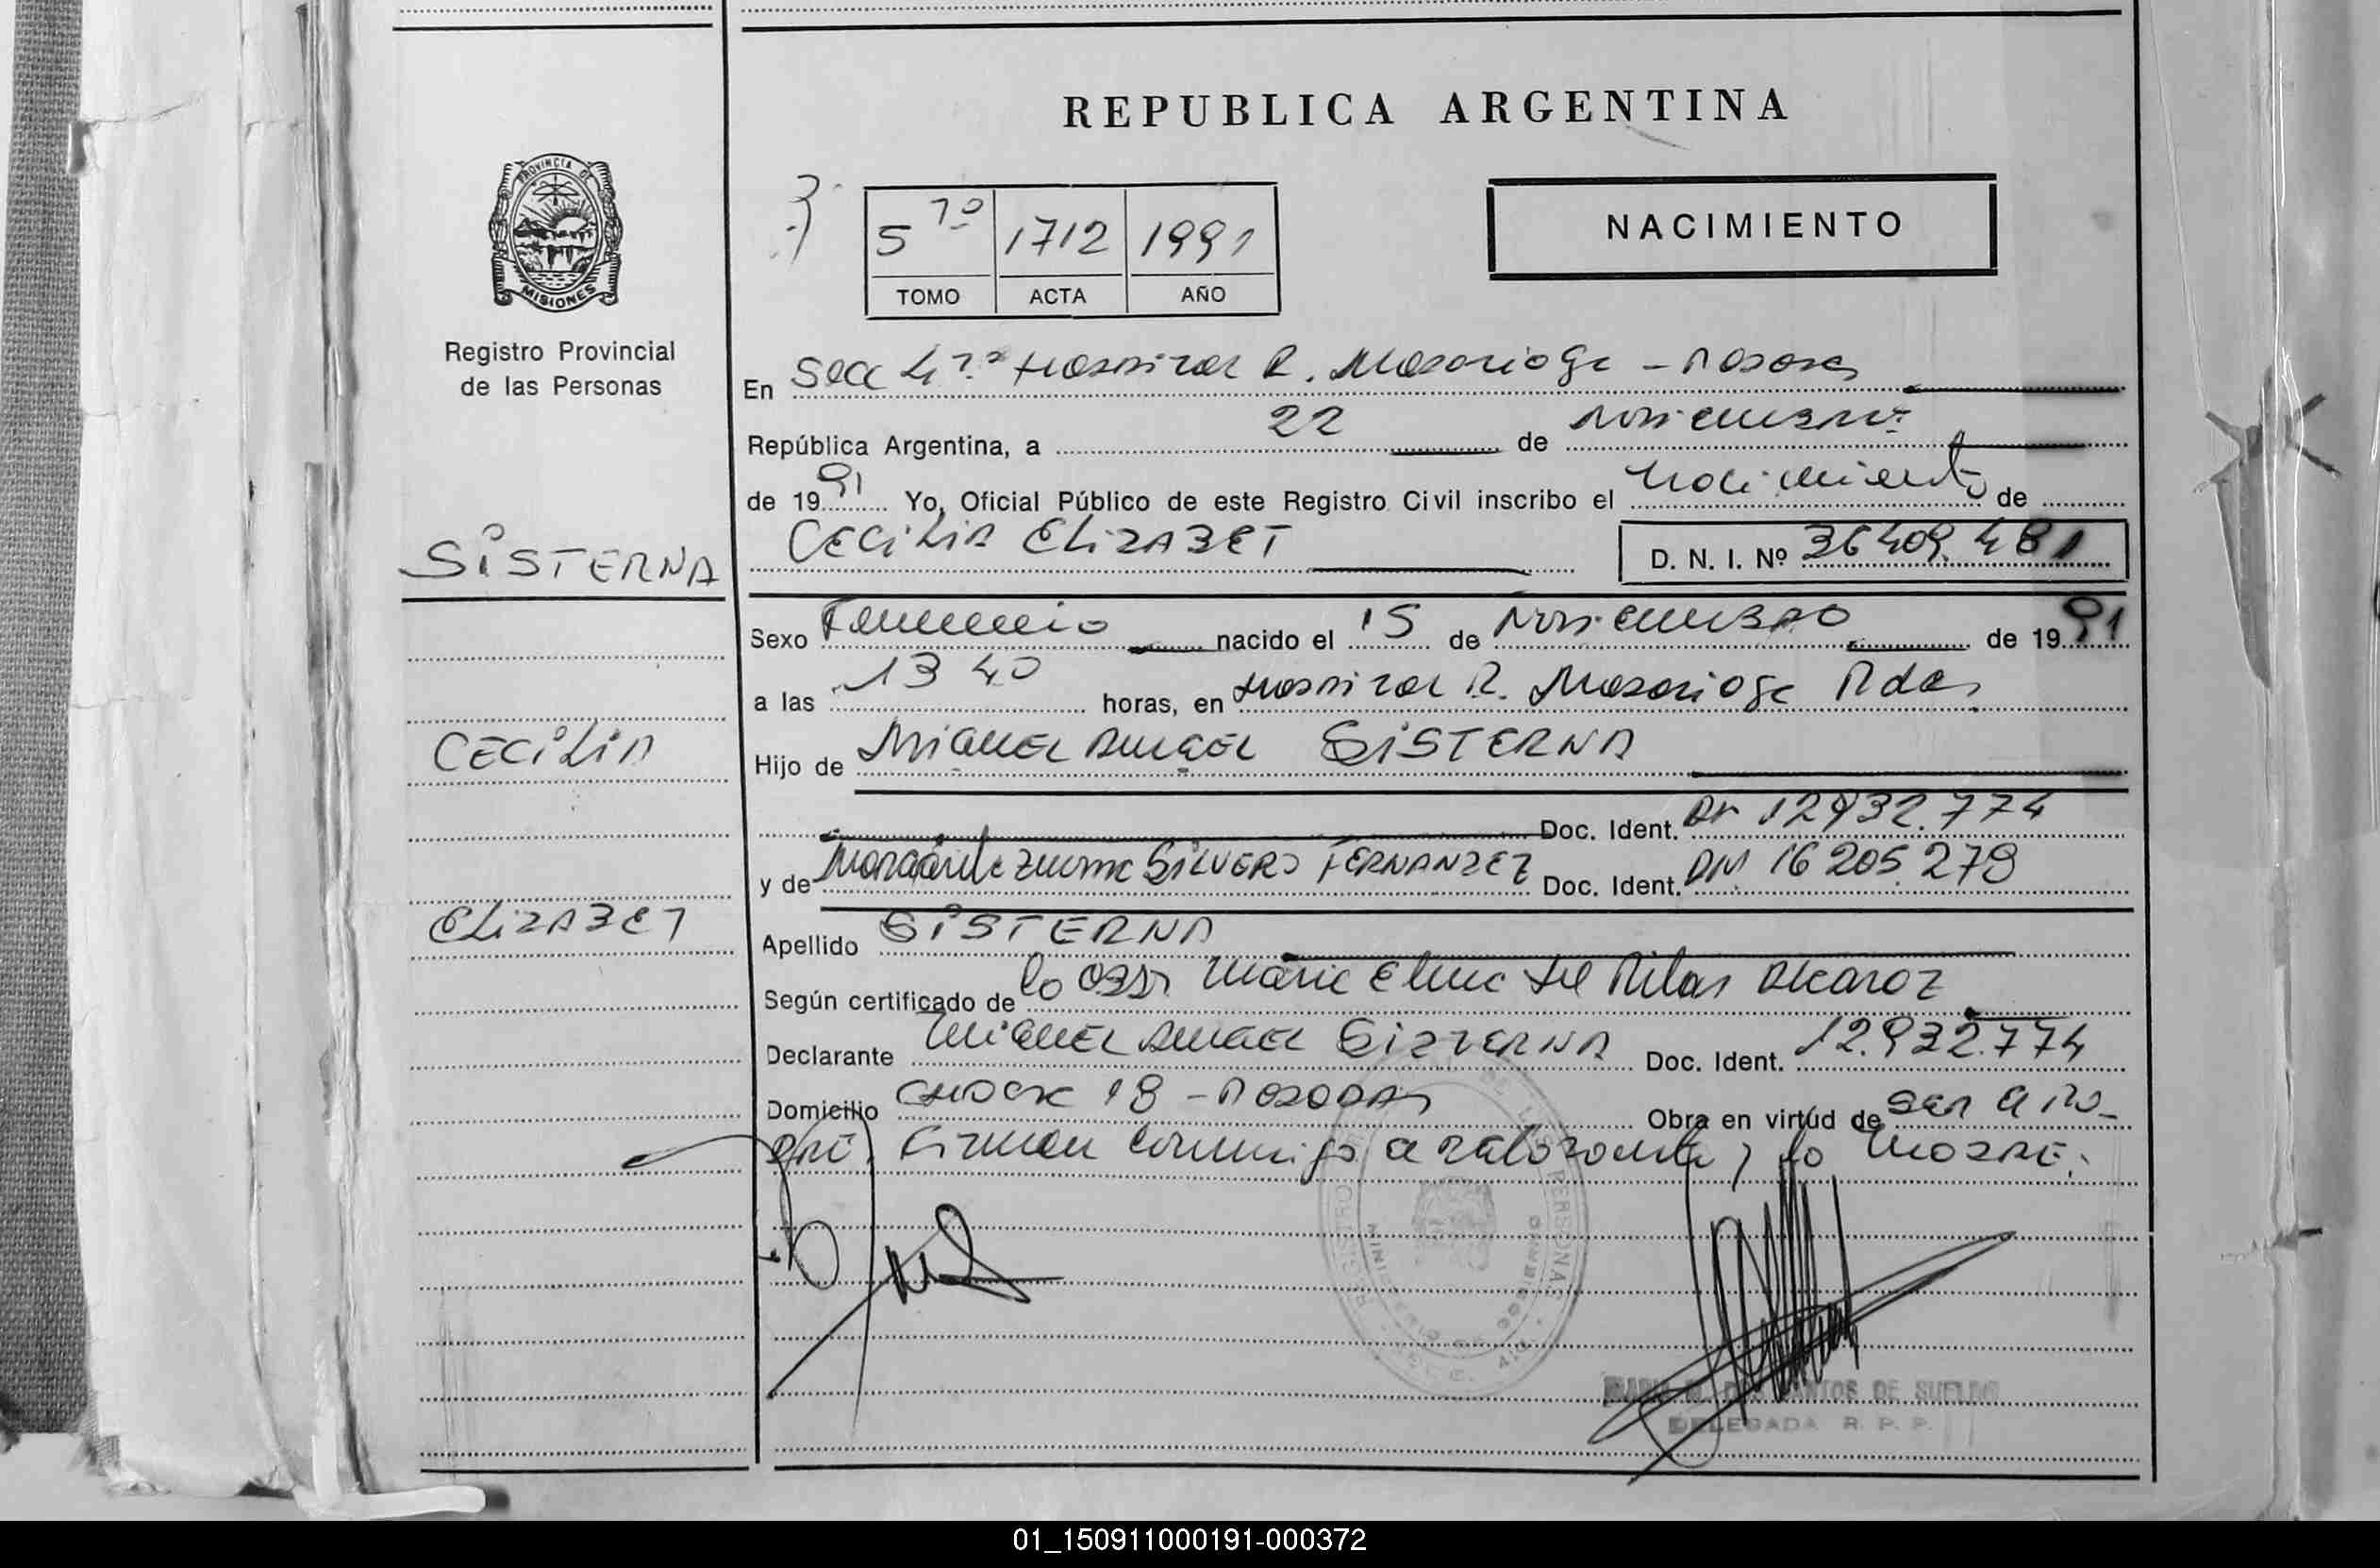 REPUBLICA ARGENTINA
PROVINCIA DE
MISIONES
Registro Provincial
de las Personas
5 TO 1712 1991
TOMO ACTA AÑO
NACIMIENTO
En Secc 4ta Hospital R. Madariaga - Posadas
República Argentina, a 22 de noviembre
de 1991 Yo, Oficial Público de este Registro Civil inscribo el nacimiento de
SISTERNA
CECILIA ELIZABET D. N. I. Nº 36409.481
Sexo Femenino nacido el 15 de Noviembre de 1991
a las 13 40 horas, en Hospital R. Madariaga Pdas
CECILIA
Hijo de MIGUEL ANGEL SISTERNA
Doc. Ident. DN 12932.774
y de Margarita Zulma SILVERO FERNANDEZ Doc. Ident. DNI 16 205.279
ELIZABET
Apellido SISTERNA
Según certificado de la Obst. María Elena del Pilar Alcaraz
Declarante MIGUEL ANGEL SISTERNA Doc. Ident. 12.932.774
Domicilio CHACRA 18 - POSADAS Obra en virtud de ser el pa-
dre, Firman conmigo el declarante y la madre.
REGISTRO DE LAS PERSONAS
MINISTERIO DE GOBIERNO
DOS SANTOS DE
DELEGADA R. P. P.
01_150911000191-000372